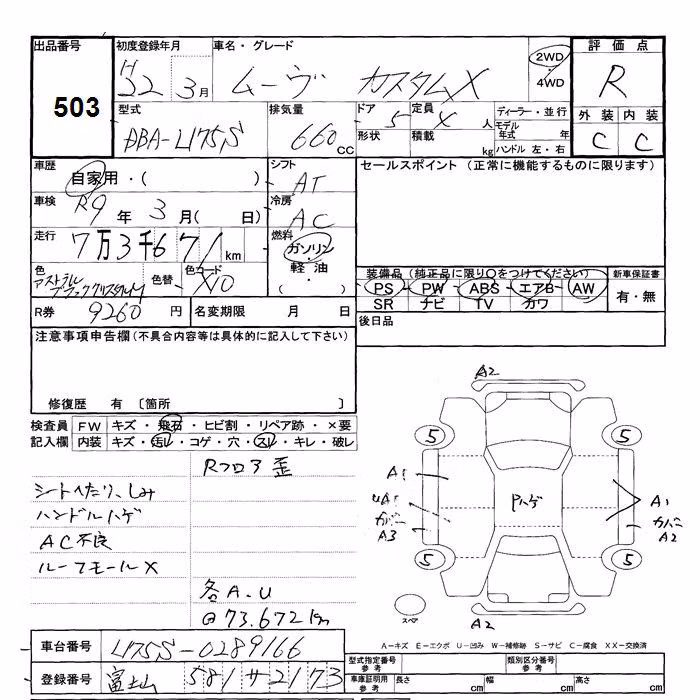 出品番号 初度登録年月 車名・グレード 評価点
503
H22 3月 ムーヴ カスタムX 2WD・4WD R
型式 排気量 ドア 定員 ディーラー・並行 外装 内装
DBA-L175S 660cc 5 4人 モデル年式 年 C C
形状 積載 kg ハンドル 左・右
車歴 シフト セールスポイント (正常に機能するものに限ります)
自家用・( ) AT
車検 冷房
R9年3月( 日) AC
走行 燃料
7万3千671km ガソリン・軽油・( )
色 色替 色コード 装備品(純正品に限り○をつけてください) 新車保証書
X10 PS PW ABS エアB AW 有・無
SR ナビ TV カワ
R券 9260円 名変期限 月 日 後日品
注意事項申告欄(不具合内容等は具体的に記入して下さい)
修復歴 有 〔箇所 〕
検査員 FW キズ・飛石・ヒビ割・リペア跡・×要
記入欄 内装 キズ・汚レ・コゲ・穴・スレ・キレ・破レ
Rフロア歪
シートへたり、しみ
ハンドルハゲ
AC不良
ルーフモールX
各A.U
@73.672km
A2
5 5
A1 Pハゲ A1
UA1
カバー カバー
A3 A2
5 5
スペア A2
A-キズ E-エクボ U-凹み W-補修跡 S-サビ C-腐食 XX-交換済
車台番号 L175S-0289166
登録番号 富士山 581 サ 2173
型式指定番号 参考 類別区分番号 参考
車庫証明用 参考 長さ cm 幅 cm 高さ cm